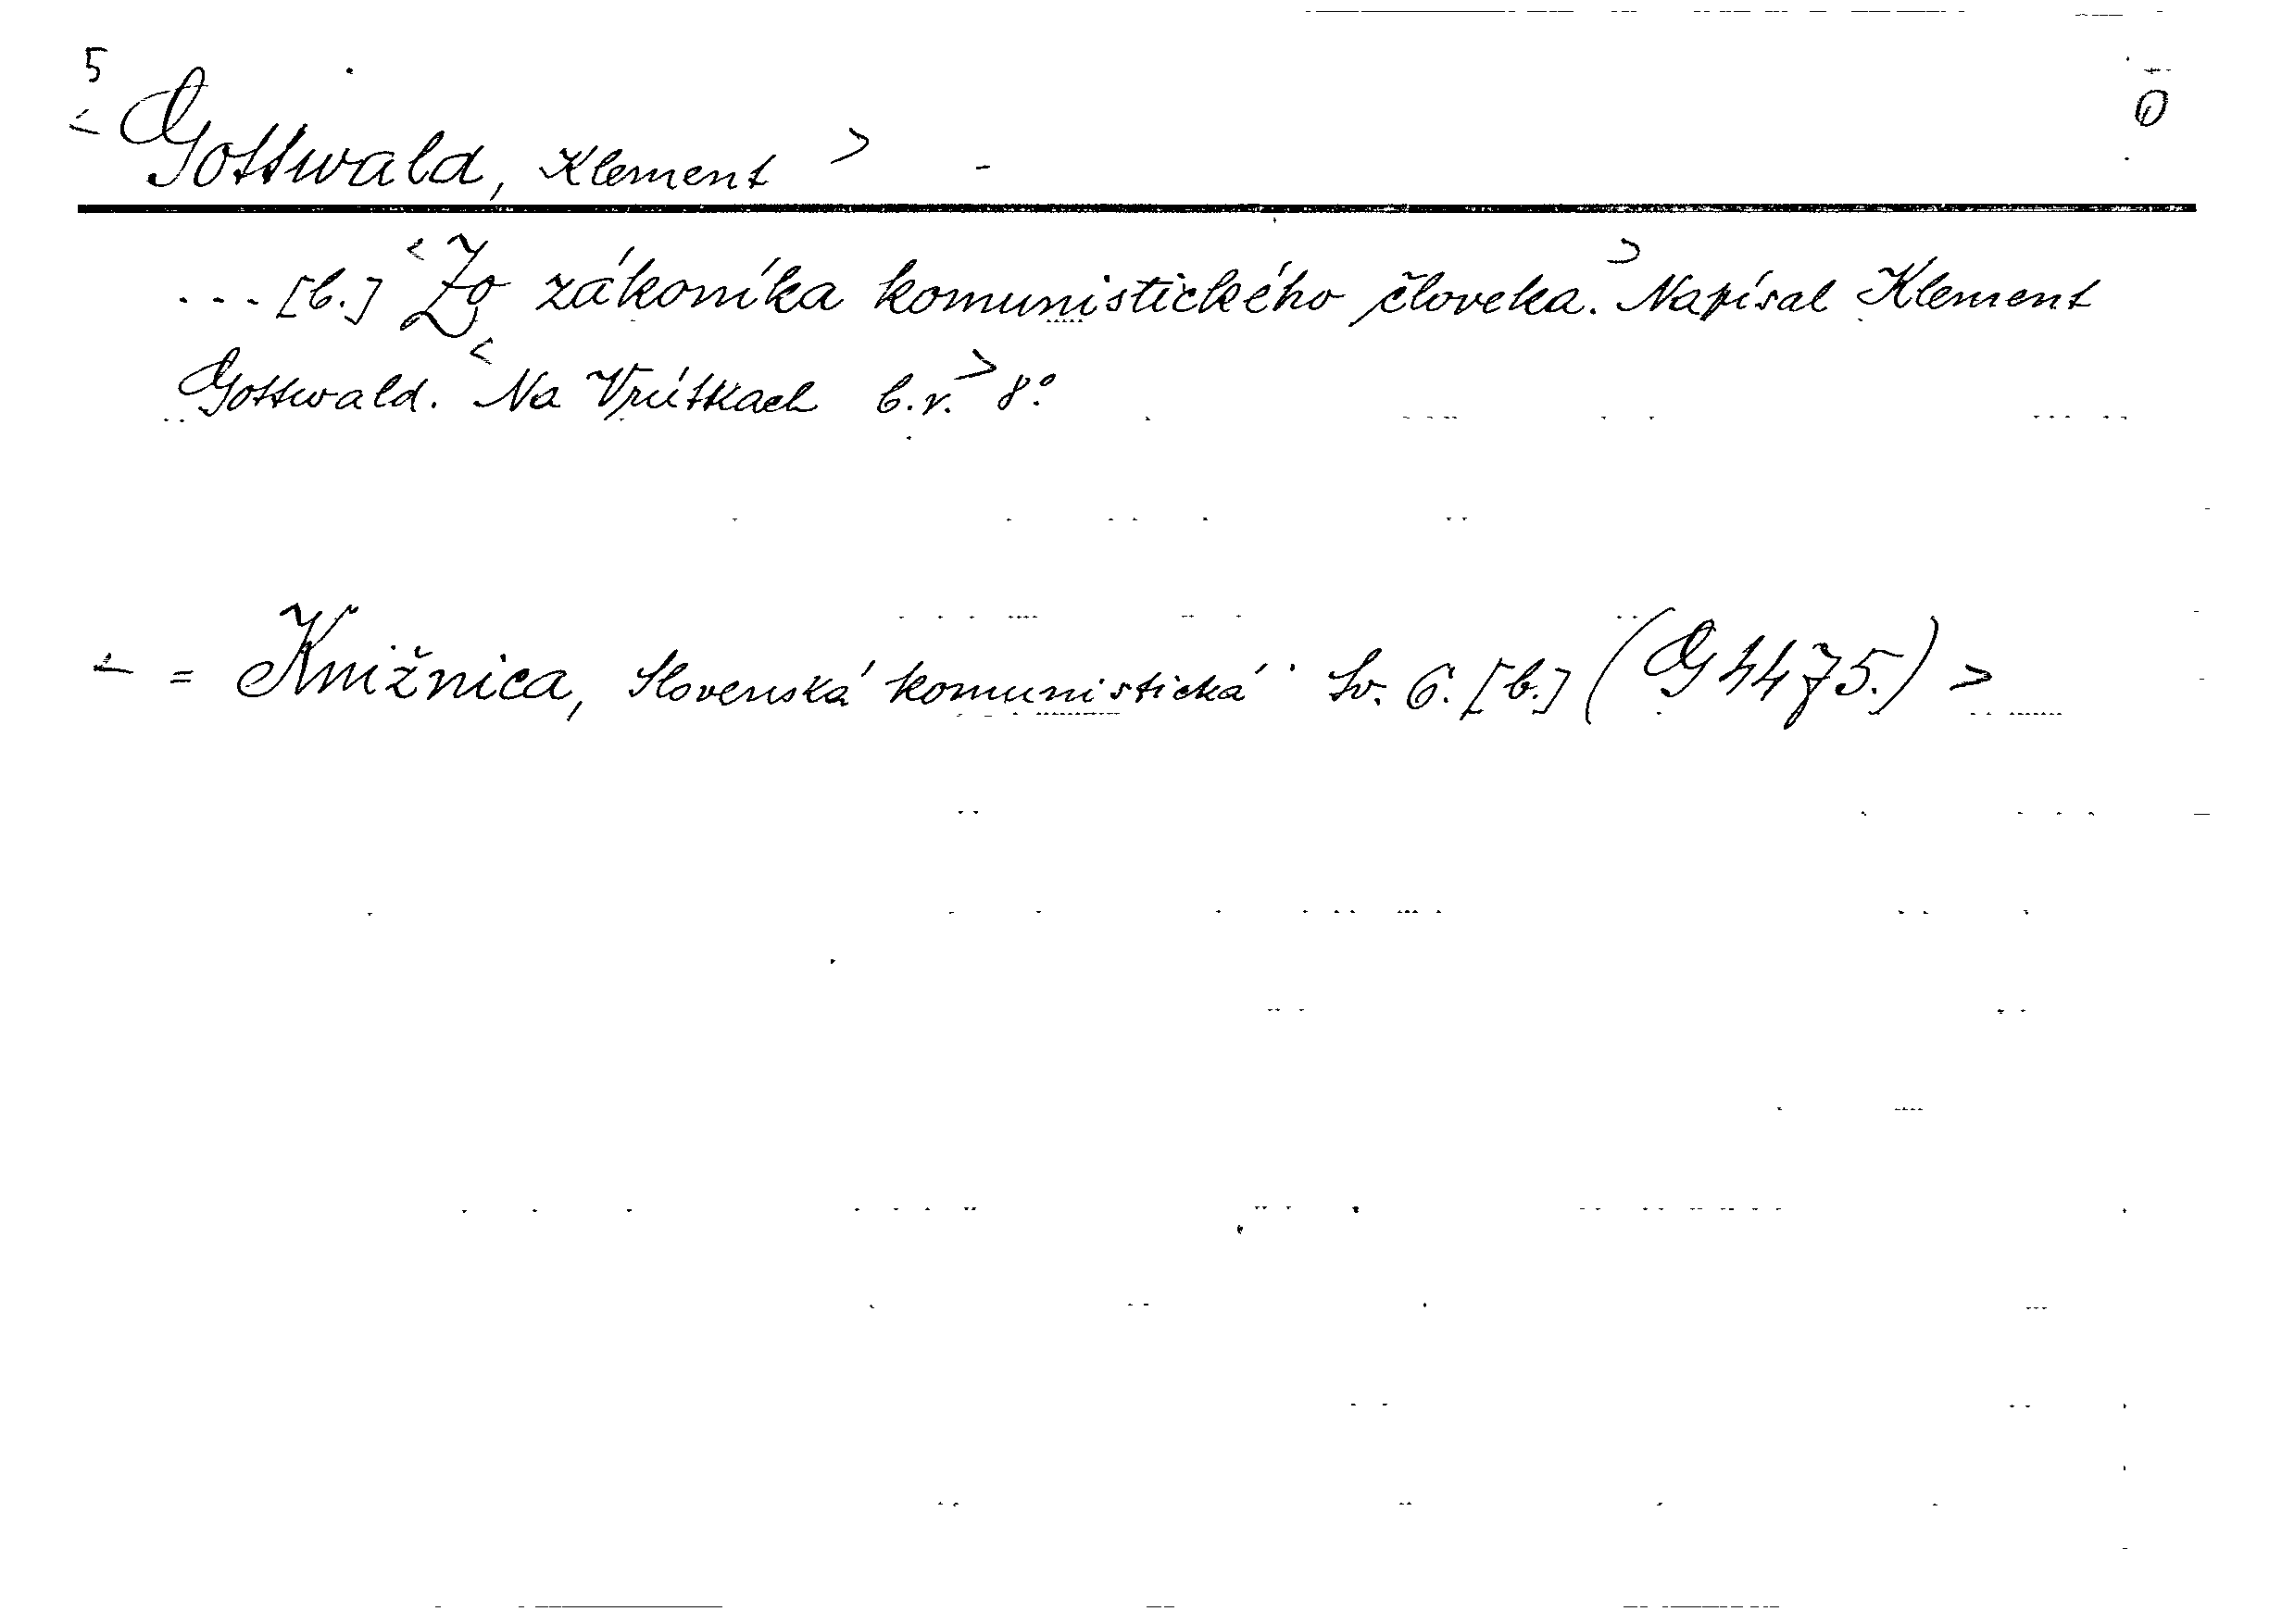 5
< Gottwald, Klement > -
0
... [b.] <Zo zákoníka komunistického človeka.> Napísal Klement
Gottwald. <Na Vrútkach b.r.> 8°
< = Knižnica, Slovenská komunistická Sv. 6. [b.] (G 4475.) >